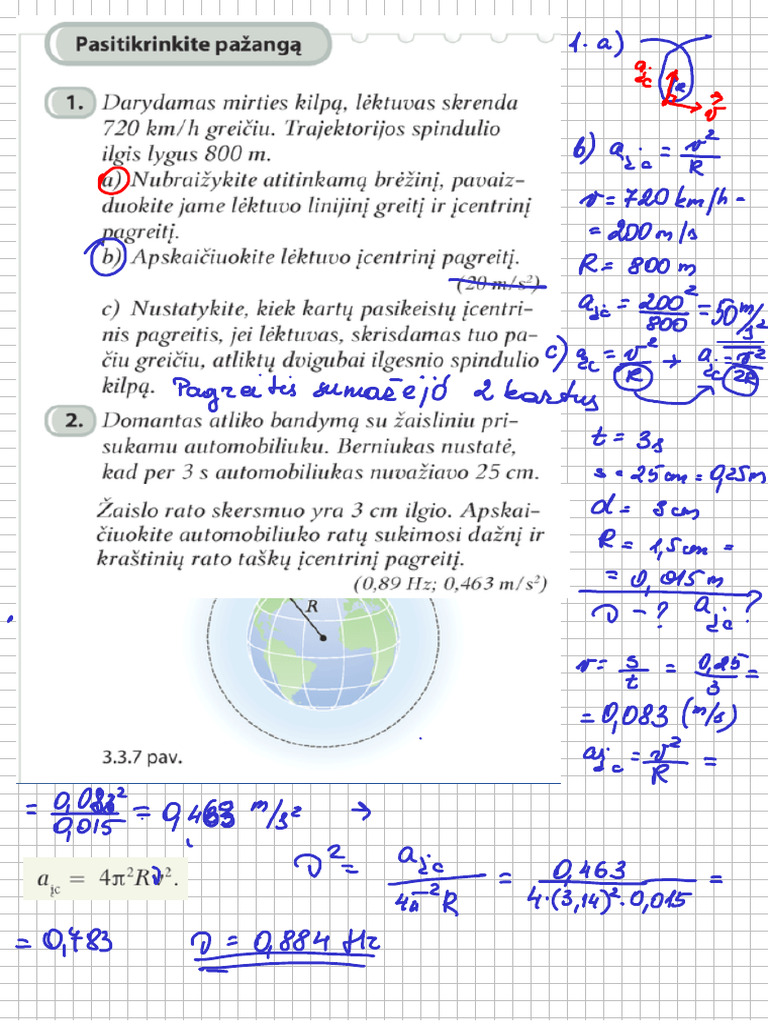 Pasitikrinkite pažangą
1. Darydamas mirties kilpą, lėktuvas skrenda
720 km/h greičiu. Trajektorijos spindulio
ilgis lygus 800 m.
a) Nubraižykite atitinkamą brėžinį, pavaiz-
duokite jame lėktuvo linijinį greitį ir įcentrinį
pagreitį.
b) Apskaičiuokite lėktuvo įcentrinį pagreitį.
(20 m/s²)
c) Nustatykite, kiek kartų pasikeistų įcentri-
nis pagreitis, jei lėktuvas, skrisdamas tuo pa-
čiu greičiu, atliktų dvigubai ilgesnio spindulio
kilpą. Pagreitis sumažėjo 2 kartus
2. Domantas atliko bandymą su žaisliniu pri-
sukamu automobiliuku. Berniukas nustatė,
kad per 3 s automobiliukas nuvažiavo 25 cm.
Žaislo rato skersmuo yra 3 cm ilgio. Apskai-
čiuokite automobiliuko ratų sukimosi dažnį ir
kraštinių rato taškų įcentrinį pagreitį.
(0,89 Hz; 0,463 m/s²)
R
3.3.7 pav.
1. a)
aįc R v
b) a įc = v²/R
v = 720 km/h =
= 200 m/s
R = 800 m
a įc = 200²/800 = 50 m/s²
c) a įc = v²/R → a įc = v²/2R
t = 3s
s = 25 cm = 0,25 m
d = 3 cm
R = 1,5 cm =
= 0,015 m
ν - ? a įc ?
v = s/t = 0,25/3 =
= 0,083 (m/s)
a įc = v²/R =
= 0,083²/0,015 = 0,463 m/s² →
a įc = 4π²Rν².
ν² = a įc/4π²R = 0,463/4·(3,14)²·0,015 =
= 0,783 ν = 0,884 Hz